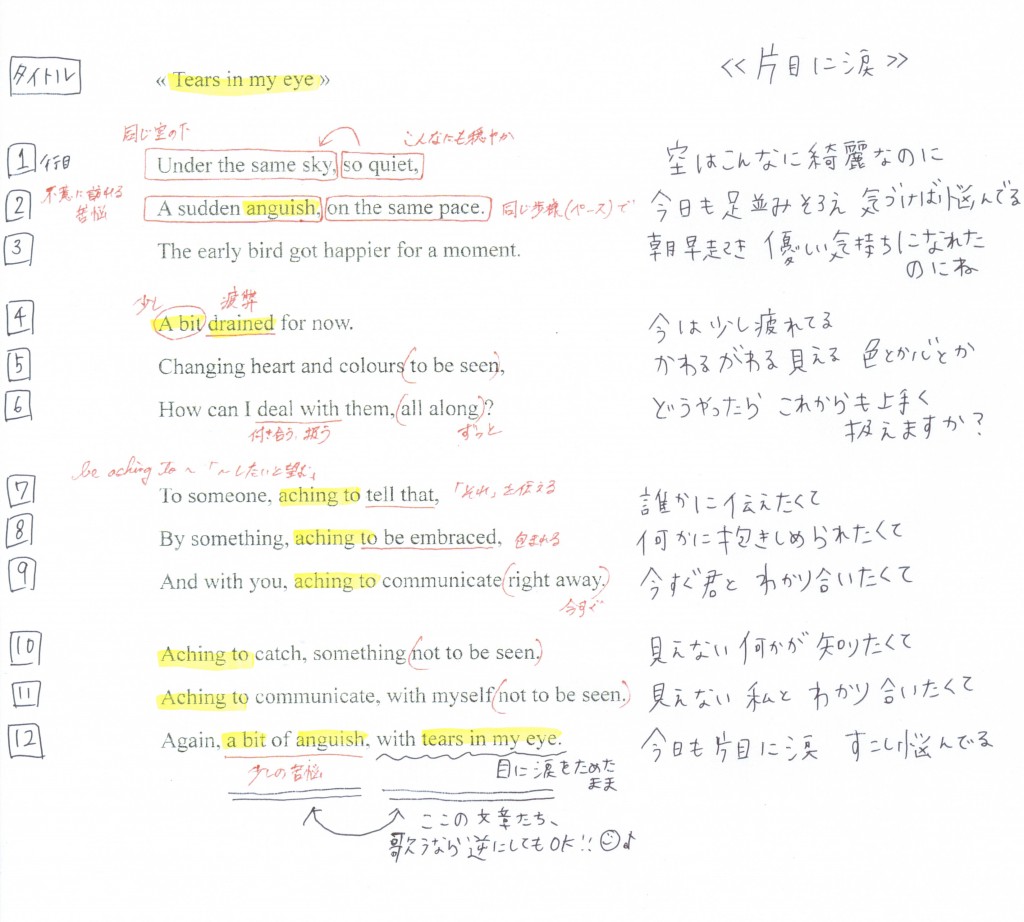 タイトル « Tears in my eye » <<片目に涙>>
同じ空の下 こんなにも穏やか
1 行目 Under the same sky, so quiet, 空はこんなに綺麗なのに
不意に訪れる苦悩
2 A sudden anguish, on the same pace. 同じ歩様(ペース)で 今日も足並みそろえ 気づけば悩んでる
3 The early bird got happier for a moment. 朝早起き 優しい気持ちになれた
のにね
少し 疲弊
4 A bit drained for now. 今は少し疲れてる
5 Changing heart and colours (to be seen), かわるがわる 見える 色とか心とか
6 How can I deal with them, (all along)? どうやったら これからも上手く
扱えますか?
付き合う、扱う ずっと
be aching to ~ 「~したいと望む」
7 To someone, aching to tell that, 「それ」を伝える 誰かに伝えたくて
8 By something, aching to be embraced, 包まれる 何かに抱きしめられたくて
9 And with you, aching to communicate (right away,) 今すぐ君と わかり合いたくて
今すぐ
10 Aching to catch, something (not to be seen,) 見えない何かが 知りたくて
11 Aching to communicate, with myself (not to be seen.) 見えない 私と わかり合いたくて
12 Again, a bit of anguish, with tears in my eye. 今日も片目に涙 すこし悩んでる
少しの苦悩 目に涙をためた
まま
ここの文章たち、
歌うなら逆にしてもOK!!